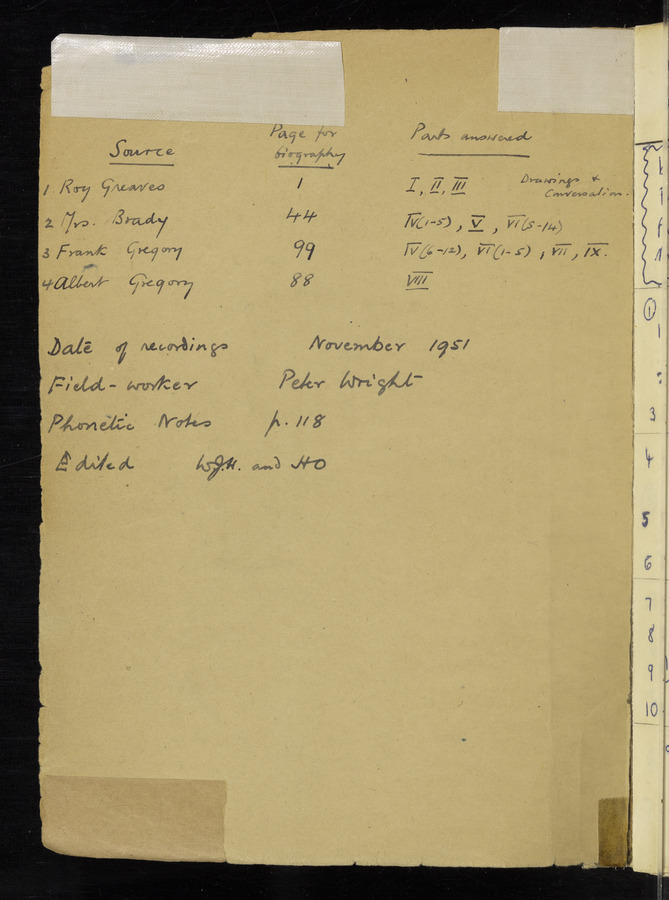 Source Page for biography Parts answered
1 Roy Greaves 1 I, II, III Drawings + Conversation.
2 Mrs. Brady 44 IV(1-5), V, VI(5-14)
3 Frank Gregory 99 IV(6-12), VI(1-5), VII, IX.
4 Albert Gregory 88 VIII
Date of recordings November 1951
Field-worker Peter Wright
Phonetic Notes p. 118
Edited W.J.H. and HO
1
3
4
5
6
7
8
9
10